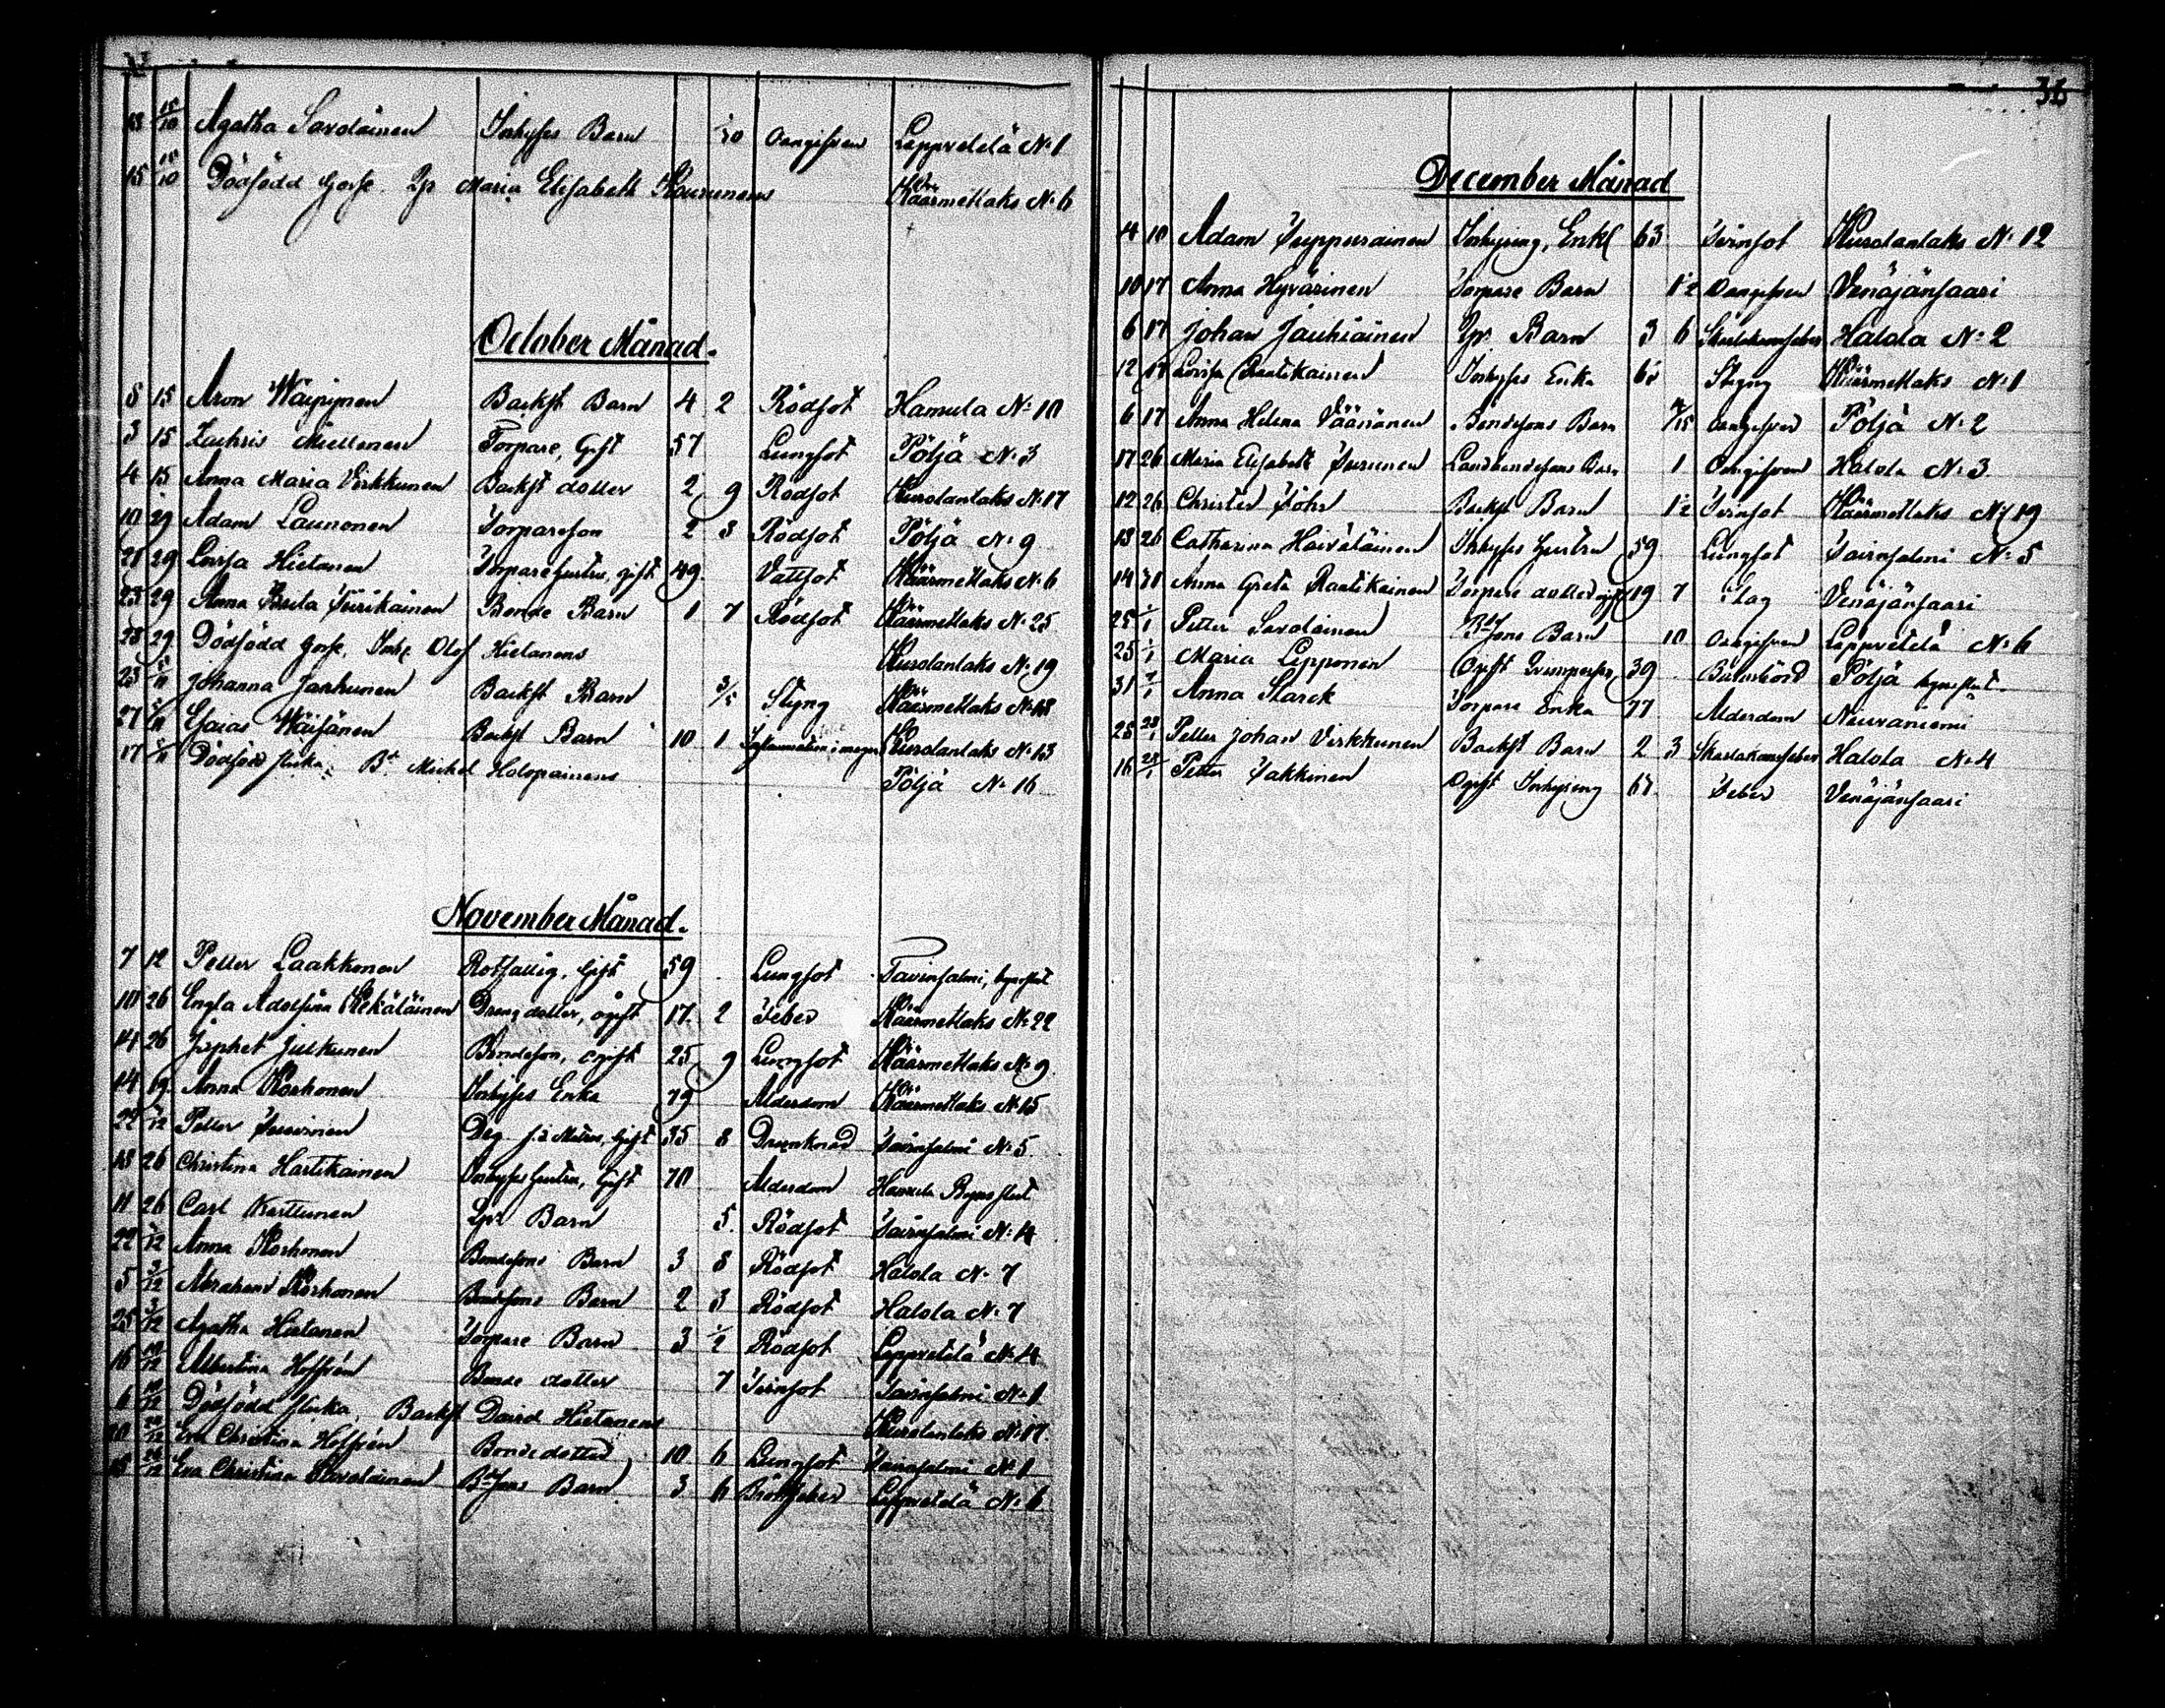 36
15/10 Agatha Savolainen Inhyses Barn 1/30 Oangifven Leppvetelä No 1
15 15/10 Dödfödd gosse. Maria Elisabeth Kaurunens Käärmetlaks No 6
October Månad.
5 15 Aron Wäisänen Backst Barn 4 2 Rödsot Hamula No 10
3 15 Zachris Miettinen Torpare, Gift 57 Lungsot Pöljä No 3
4 15 Anna Maria Virkkunen Backst dotter 2 9 Rödsot Kurolanlaks No 17
10 29 Adam Launonen Torpareson 2 3 Rödsot Pöljä No 9
21 29 Lovisa Hietanen Torpare hustru, gift 49 Vattsot Käärmetlaks No 6
23 29 Anna Brita Bonde Barn 1 7 Rödsot Käärmetlaks No 25
28 29 Dödfödd gosse, Inh. Olof Hietanens Kurolanlaks No 19
23 5/11 Johanna Jaakunen Backst Barn 3/5 Styng Käärmetlaks No 18
27 5/11 Esaias Wäisänen Backst Barn 10 1 Inflammation i magen Kurolanlaks No 13
17 5/11 Dödfödd flicka, Bd. Michel Holopainens Pöljä No 16
November Månad.
7 12 Petter Laakkonen Rotfattig, Gift 59 Lungsot Tavinsalmi, bynsflut
10 26 Engla Adolfina Kekäläinen Dreng dotter, ogift 17 2 Feber Käärmetlaks No 22
14 26 Japhet Julkunen Bondeson, ogift 25 9 Lungsot Käärmetlaks No 9
14 19 Anna Korhonen Inhyses Enka 79 Ålderdom Käärmetlaks No 15
22 3/12 Petter Gift 35 8 Drunknad Tavinsalmi No 5
18 26 Christina Hartikainen Inhyses hustru, Gift 70 Ålderdom Bynsflut
11 26 Carl Karttunen Barn 5 Rödsot Tavinsalmi No 14
22 3/12 Anna Korhonen Bondesons Barn 3 8 Rödsot Halola No 7
5 3/12 Abraham Korhonen Bondesons Barn 2 3 Rödsot Halola No 7
25 3/12 Agatha Hietanen Torpare Barn 3 1/2 Rödsot Leppvetelä No 14
16 10/12 Albertina Hoffrén Bonde dotter 7 Tvinsot Tavinsalmi No 1
6 10/12 Dödfödd flicka, Backst David Hietanens Kurolanlaks No 17
20 Eva Christina Hoffrén Bondedotter 10 6 Lungsot Tavinsalmi No 1
18 Eva Christina Savolainen Bdesons Barn 3 6 Brömfeber Leppvetelä No 6
December Månad
14 10 Adam Tuppurainen Inhysing, Enkl 63 Tvinsot Kurolanlaks No 12
10 17 Anna Hyvärinen Torpare Barn 1/2 Oangifven Venäjänsaari
6 17 Johan Jauhiainen Barn 3 6 Skarlakansfeber Halola No 2
12 17 Lovisa Raatikainen Inhyses Enka Styng Käärmetlaks No 1
6 17 Anna Helena Väänänen Bondesons Barn 4/15 Oangifven Pöljä No 2
17 26 Maria Elisabeth Landbondesons Barn 1 Oangifven Halola No 3
12 26 Christer Backst Barn 1/2 Tvinsot Käärmetlaks No 19
13 26 Catharina Inhyses hustru 59 Lungsot Tavinsalmi No 5
14 31 Anna Greta Raatikainen Torpare dotter ogift 19 7 Slag Venäjänsaari
25 1/1 Petter Savolainen Bdesons Barn 10 Oangifven Leppvetelä No 6
25 1/1 Maria Lipponen Ogift 39 Barnsbörd Pöljä bynsflut.
31 Anna Starck Torpare Enka 77 Ålderdom Nieuvaniemi
25 28/1 Petter Johan Virkkunen Backst Barn 2 3 Skarlakansfeber Halola No 4
16 28/1 Petter Takkinen Ogift Inhysing 67 Feber Venäjänsaari